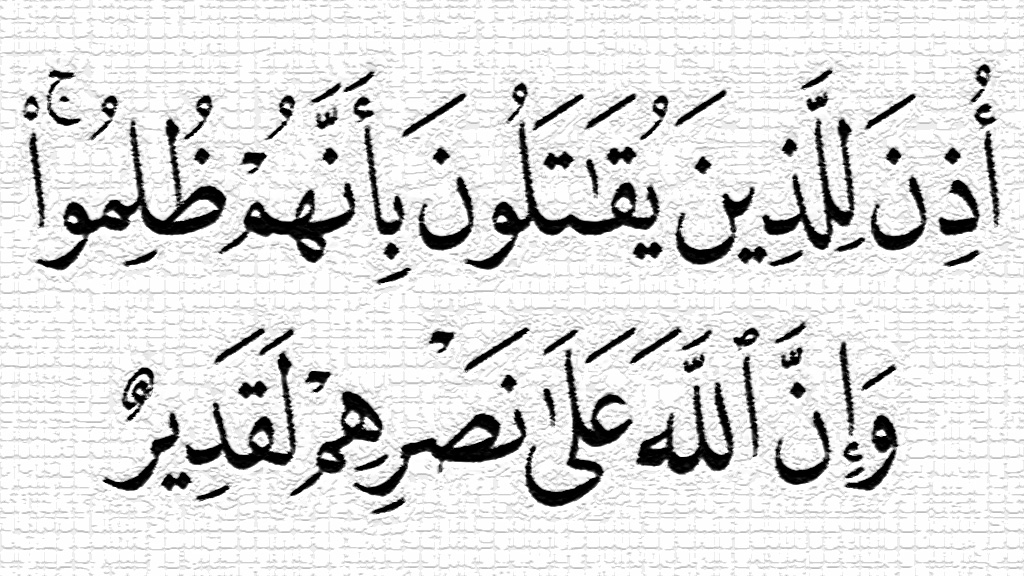 أُذِنَ لِلَّذِينَ يُقَـٰتَلُونَ بِأَنَّهُمْ ظُلِمُوا۟ ۚ
وَإِنَّ ٱللَّهَ عَلَىٰ نَصْرِهِمْ لَقَدِيرٌ